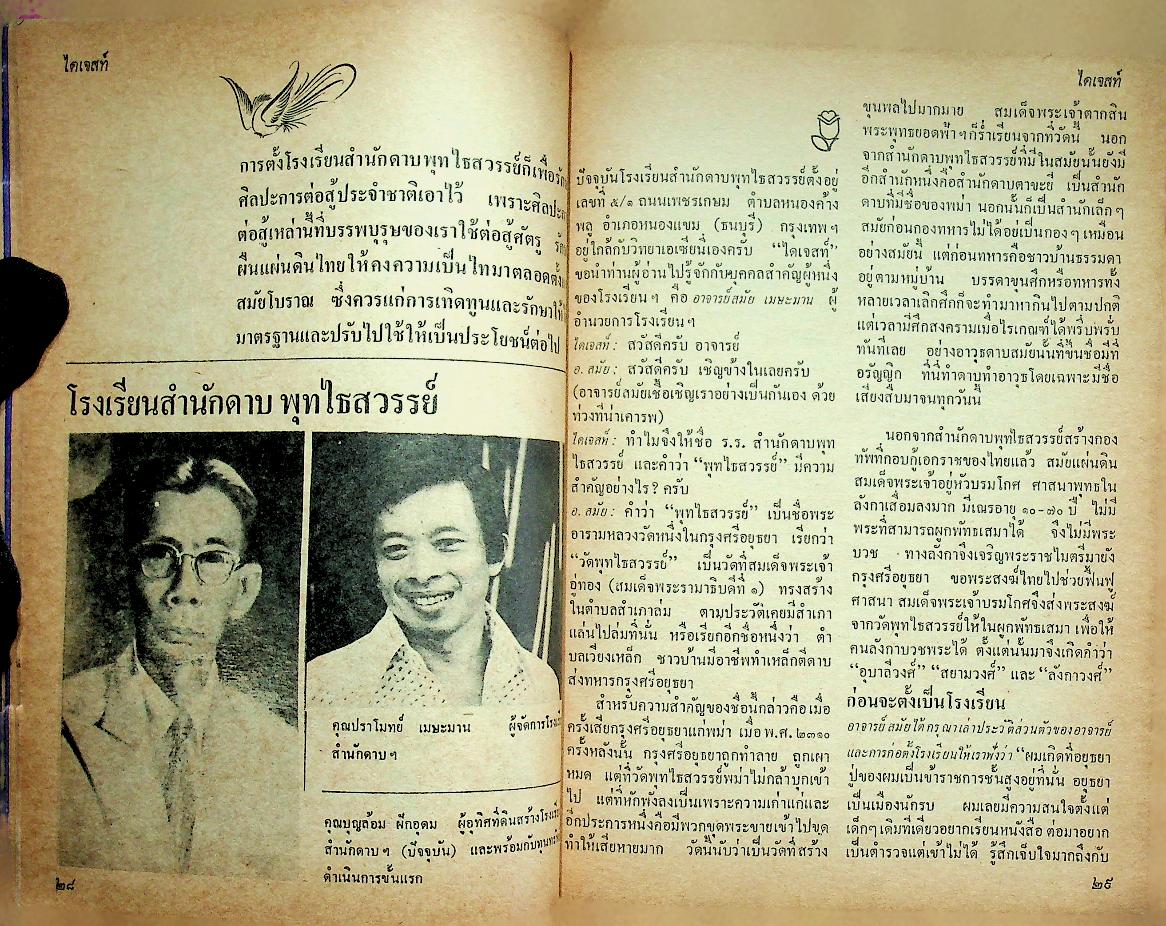 ไดเจสท์
การตั้งโรงเรียนสำนักดาบพุทไธสวรรย์ก็เพื่อ
ศิลปะการต่อสู้ประจำชาติเอาไว้ เพราะศิลปะ
ต่อสู้เหล่านี้ที่บรรพบุรุษของเราใช้ต่อสู้ศัตรู
ผืนแผ่นดินไทยให้คงความเป็นไทมาตลอดตั้ง
สมัยโบราณ ซึ่งควรแก่การเทิดทูนและรักษาให้
มาตรฐานและปรับไปใช้ให้เป็นประโยชน์ต่อไป
โรงเรียนสำนักดาบ พุทไธสวรรย์
คุณปราโมทย์ เมษะมาน ผู้จัดการ
สำนักดาบฯ
คุณบุญล้อม ผึกอุดม ผู้อุทิศที่ดินสร้าง
สำนักดาบฯ (ปัจจุบัน) และพร้อมกับทุน
ดำเนินการขั้นแรก
๒๘
ไดเจสท์
ปัจจุบันโรงเรียนสำนักดาบพุทไธสวรรย์ตั้งอยู่
เลขที่ ๕/๑ ถนนเพชรเกษม ตำบลหนองค้าง
พลู อำเภอหนองแขม (ธนบุรี) กรุงเทพฯ
อยู่ใกล้กับวิทยาเอเซียนี่เองครับ “ไดเจสท์”
ขอนำท่านผู้อ่านไปรู้จักกับบุคคลสำคัญผู้หนึ่ง
ของโรงเรียนฯ คือ อาจารย์สมัย เมษะมาน ผู้
อำนวยการโรงเรียนฯ
ไดเจสท์: สวัสดีครับ อาจารย์
อ. สมัย: สวัสดีครับ เชิญข้างในเลยครับ
(อาจารย์สมัยเชื้อเชิญเราอย่างเป็นกันเอง ด้วย
ท่วงทีน่าเคารพ)
ไดเจสท์: ทำไมจึงให้ชื่อ ร.ร. สำนักดาบพุท
ไธสวรรย์ และคำว่า “พุทไธสวรรย์” มีความ
สำคัญอย่างไร? ครับ
อ. สมัย: คำว่า “พุทไธสวรรย์” เป็นชื่อพระ
อารามหลวงวัดหนึ่งในกรุงศรีอยุธยา เรียกว่า
“วัดพุทไธสวรรย์” เป็นวัดที่สมเด็จพระเจ้า
อู่ทอง (สมเด็จพระรามาธิบดีที่ ๑) ทรงสร้าง
ในตำบลสำเภาล่ม ตามประวัติเคยมีสำเภา
แล่นไปล่มที่นั่น หรือเรียกอีกชื่อหนึ่งว่า ตำ
บลเวียงเหล็ก ชาวบ้านมีอาชีพทำเหล็กตีดาบ
ส่งทหารกรุงศรีอยุธยา
สำหรับความสำคัญของชื่อนี้กล่าวคือเมื่อ
ครั้งเสียกรุงศรีอยุธยาแก่พม่า เมื่อ พ.ศ. ๒๓๑๐
ครั้งหลังนั้น กรุงศรีอยุธยาถูกทำลาย ถูกเผา
หมด แต่ที่วัดพุทไธสวรรย์พม่าไม่กล้าบุกเข้า
ไป แต่ที่หักพังลงเป็นเพราะความเก่าแก่และ
อีกประการหนึ่งคือมีพวกขุดพระขายเข้าไปขุด
ทำให้เสียหายมาก วัดนี้นับว่าเป็นวัดที่สร้าง
ขุนพลไปมากมาย สมเด็จพระเจ้าตากสิน
พระพุทธยอดฟ้าฯก็ร่ำเรียนจากที่วัดนี้ นอก
จากสำนักดาบพุทไธสวรรย์ที่มีในสมัยนั้นยังมี
อีกสำนักหนึ่งคือสำนักดาบตาขะยี่ เป็นสำนัก
ดาบที่มีชื่อของพม่า นอกนั้นก็เป็นสำนักเล็กๆ
สมัยก่อนกองทหารไม่ได้อยู่เป็นกองๆ เหมือน
อย่างสมัยนี้ แต่ก่อนทหารคือชาวบ้านธรรมดา
อยู่ตามหมู่บ้าน บรรดาขุนศึกหรือทหารทั้ง
หลายเวลาเลิกศึกก็จะทำมาหากินไปตามปกติ
แต่เวลามีศึกสงครามเมื่อไรเกณฑ์ได้พรึบพรับ
ทันทีเลย อย่างอาวุธดาบสมัยนั้นที่ขึ้นชื่อมีที่
อรัญญิก ที่นี่ทำดาบทำอาวุธโดยเฉพาะมีชื่อ
เสียงสืบมาจนทุกวันนี้
นอกจากสำนักดาบพุทไธสวรรย์สร้างกอง
ทัพที่กอบกู้เอกราชของไทยแล้ว สมัยแผ่นดิน
สมเด็จพระเจ้าอยู่หัวบรมโกศ ศาสนาพุทธใน
ลังกาเสื่อมลงมาก มีเณรอายุ ๑๐-๗๐ ปี ไม่มี
พระที่สามารถผูกพัทธเสมาได้ จึงไม่มีพระ
บวช ทางลังกาจึงเจริญพระราชไมตรีมายัง
กรุงศรีอยุธยา ขอพระสงฆ์ไทยไปช่วยฟื้นฟู
ศาสนา สมเด็จพระเจ้าบรมโกศจึงส่งพระสงฆ์
จากวัดพุทไธสวรรย์ให้ไปผูกพัทธเสมา เพื่อให้
คนลังกาบวชพระได้ ตั้งแต่นั้นมาจึงเกิดคำว่า
“อุบาลีวงศ์” “สยามวงศ์” และ “ลังกาวงศ์”
ก่อนจะตั้งเป็นโรงเรียน
อาจารย์สมัยได้กรุณาเล่าประวัติส่วนตัวของอาจารย์
และการก่อตั้งโรงเรียนให้เราฟังว่า “ผมเกิดที่อยุธยา
ปู่ของผมเป็นข้าราชการชั้นสูงอยู่ที่นั่น อยุธยา
เป็นเมืองนักรบ ผมเลยมีความสนใจตั้งแต่
เด็กๆ เดิมทีเดียวอยากเรียนหนังสือ ต่อมาอยาก
เป็นตำรวจแต่เข้าไม่ได้ รู้สึกเจ็บใจมากถึงกับ
๒๙